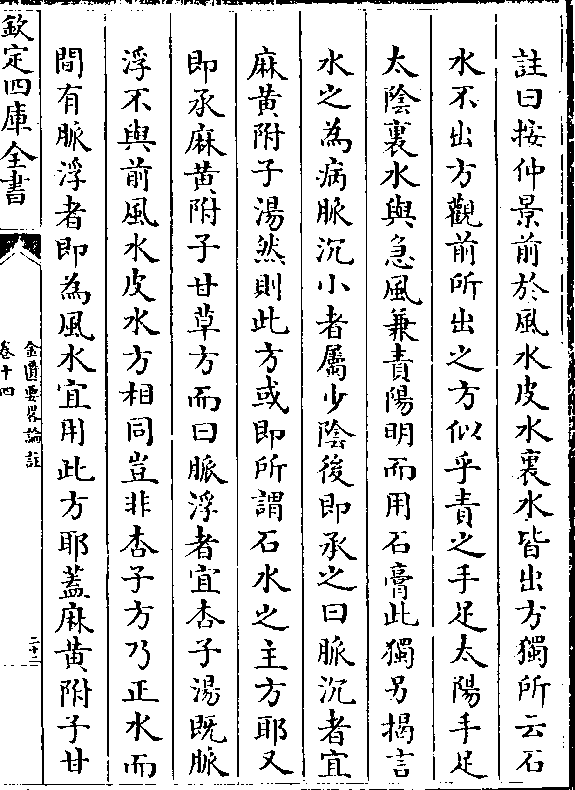 註曰按仲景前於風水皮水裏水皆出方獨所云石
水不出方觀前所出之方似乎責之手足太陽手足
太陰裏水與急風兼責陽明而用石膏此獨另揭言
水之為病脈沉小者屬少陰後即承之曰脈沉者宜
麻黄附子湯然則此方或即所謂石水之主方耶又
即承麻黄附子甘草方而曰脈浮者宜杏子湯既脈
浮不與前風水皮水方相同豈非杏子方乃正水而
間有脈浮者即為風水宜用此方耶蓋麻黄附子甘
欽定四庫全書
金匱要畧論註
卷十四
二十二